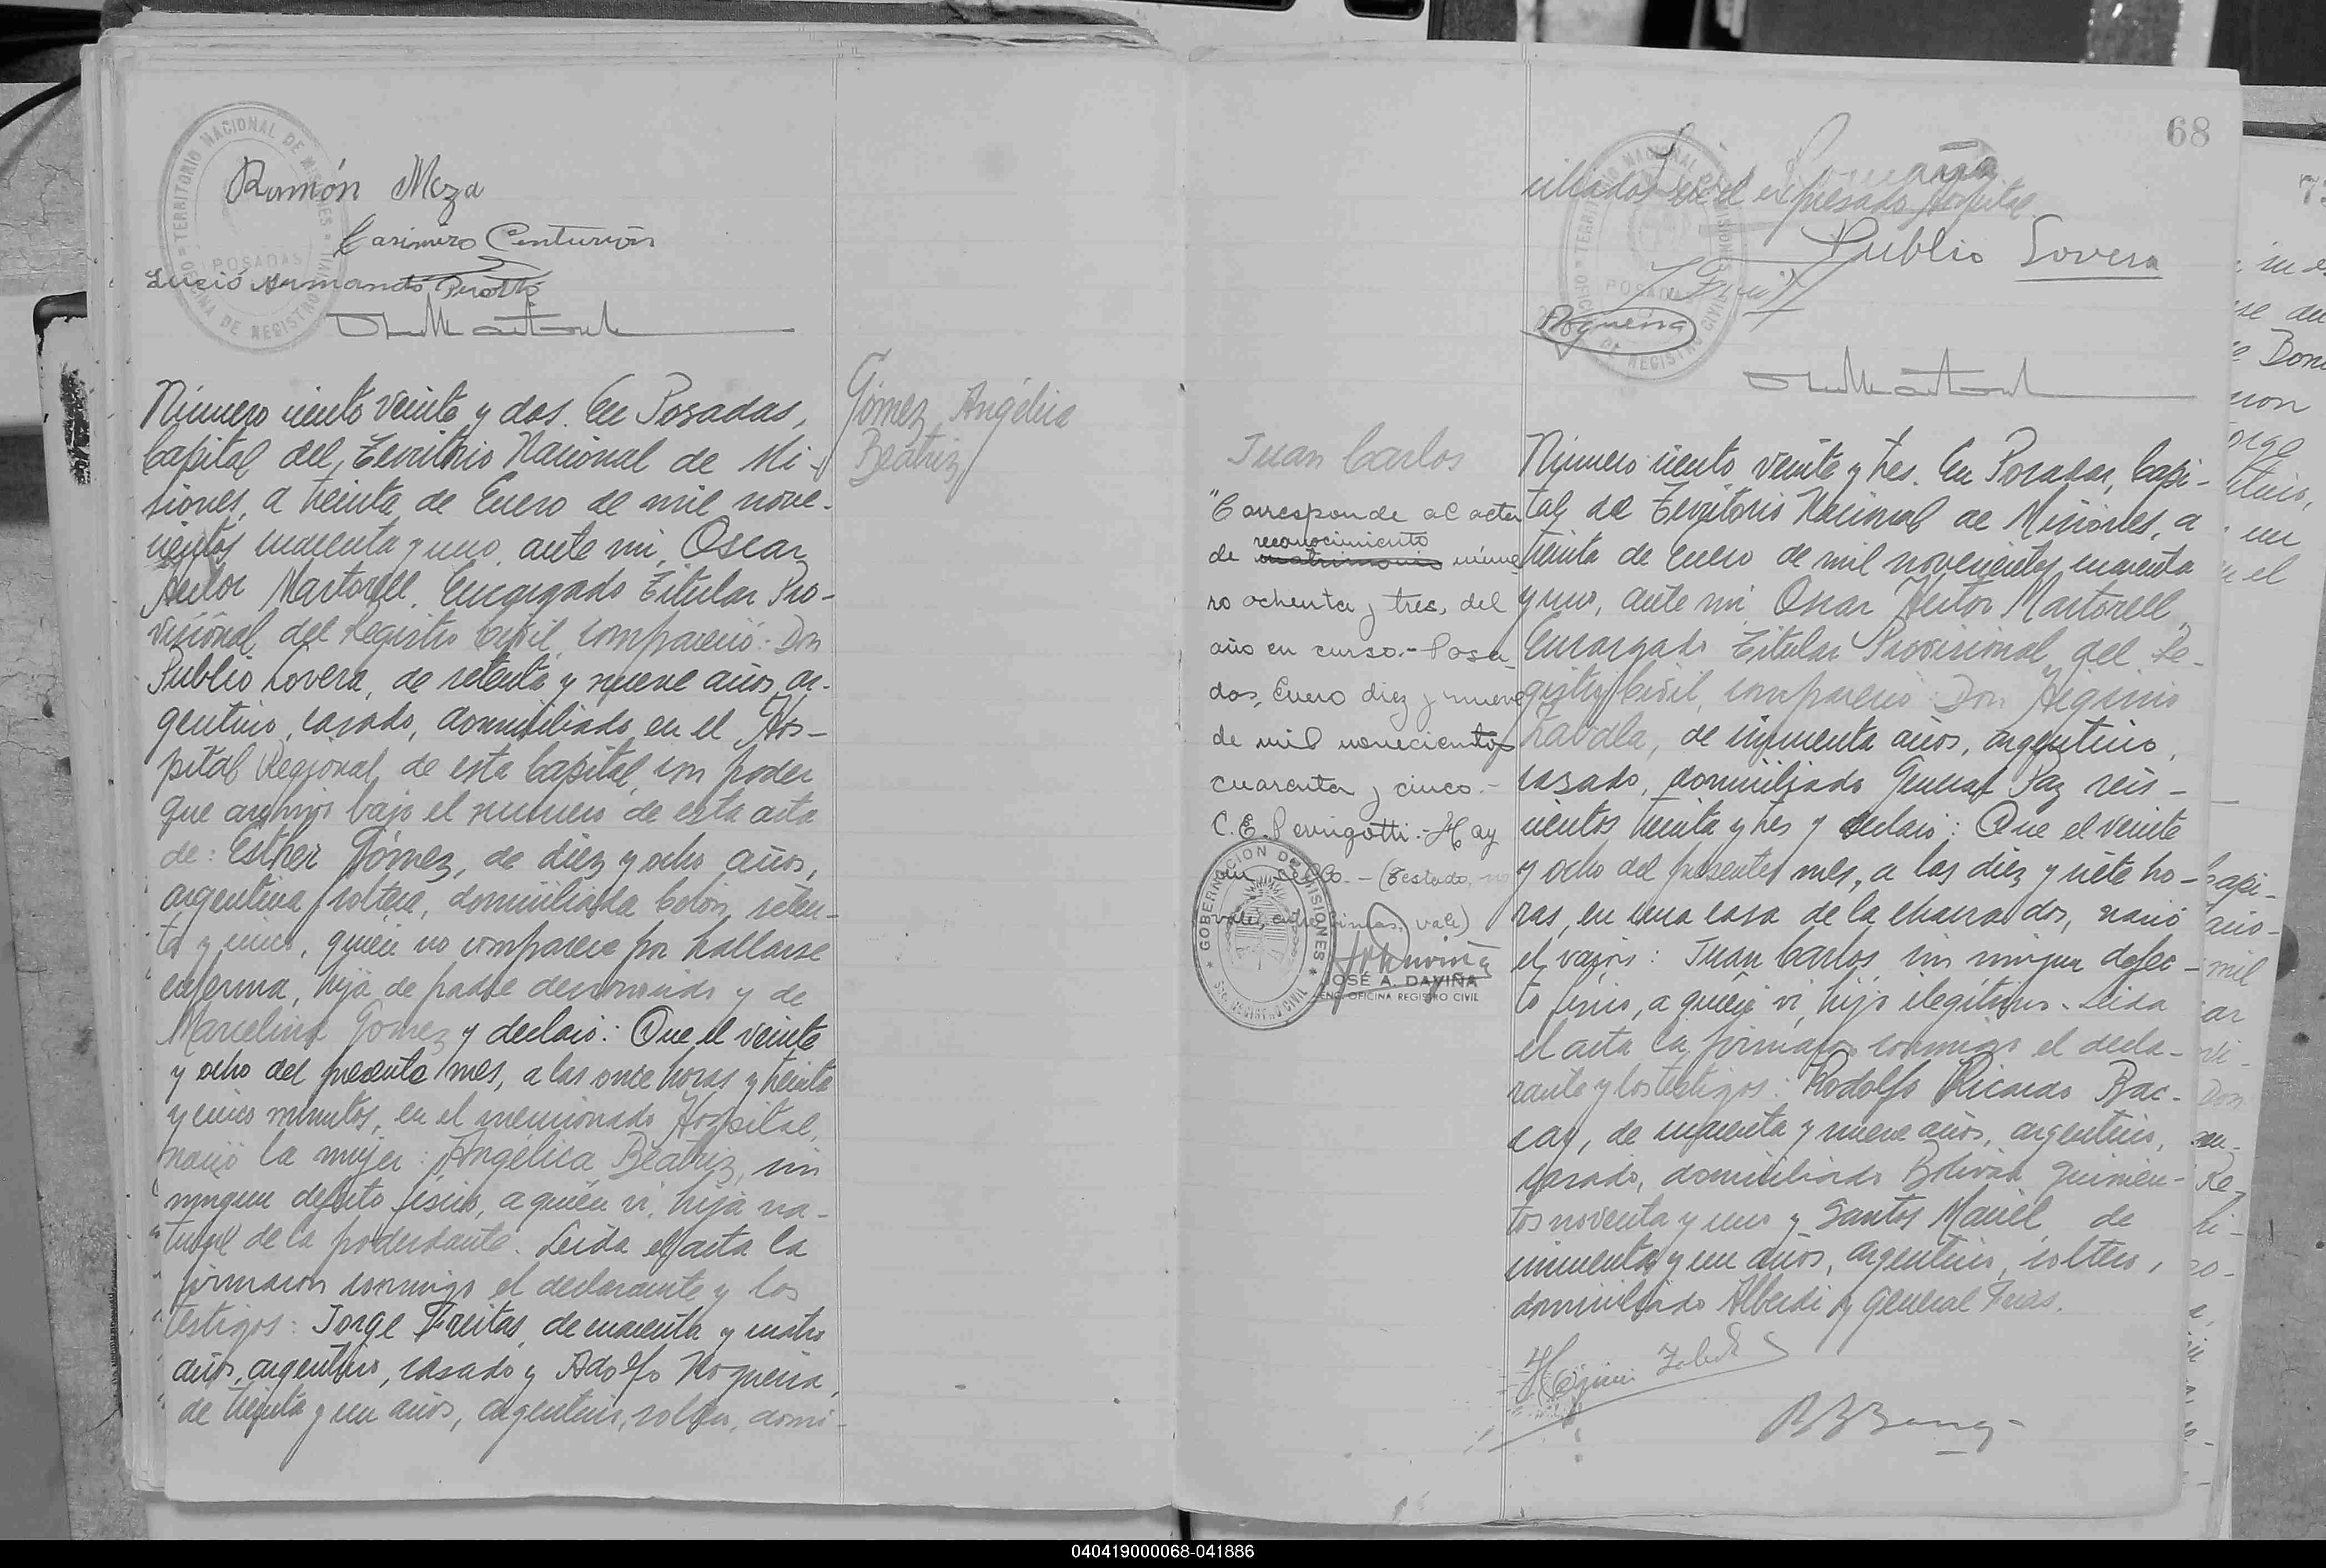 TERRITORIO NACIONAL DE MISIONES
OFICINA DE REGISTRO CIVIL
POSADAS
Ramón Meza
Casimiro Centurión
Lucio Armando
Número ciento veinte y dos. En Posadas,
Capital del Territorio Nacional de Mi-
siones, a treinta de Enero de mil nove-
cientos cuarenta y uno, ante mi, Oscar
Hector Martorell, Encargado Titular Pro-
visional del Registro Civil, compareció: Don
Publio Lovera, de setenta y nueve años, ar-
gentino, casado, domiciliado en el Hos-
pital Regional de esta Capital, con poder
que archivo bajo el numero de esta acta
de: Esther Gómez, de diez y ocho años,
argentina, soltera, domiciliada Colón, seten-
ta y cinco, quien no comparece por hallarse
enferma, hija de padre desconocido y de
Marcelina Gómez y declaró: Que el veinte
y ocho del presente mes, a las once horas y treinta
y cinco minutos, en el mencionado Hospital,
nació la mujer: Angélica Beatriz, sin
ningun defecto físico, a quién vi, hija na-
tural de la poderdante. Leída el acta la
firmaron conmigo el declarante y los
testigos: Jorge Freitas, de cuarenta y cuatro
años, argentino, casado y Adolfo Noguera,
de treinta y un años, argentino, soltero, domi-
Gómez Angélica
Beatriz
68
ciliados en el expresado Hospital.
TERRITORIO NACIONAL DE MISIONES
OFICINA DE REGISTRO CIVIL
POSADAS
Publio Lovera
Noguera
Juan Carlos
"Corresponde al acta
de reconocimiento matrimonio núme-
ro ochenta y tres, del
año en curso.- Posa-
das, Enero diez y nueve
de mil novecientos
cuarenta y cinco.-
C.E. Perrigotti.- Hay
un sello.- (Testado, no
vale, entre lineas, vale)
GOBERNACION DE MISIONES
REGISTRO CIVIL
JOSÉ A. DAVIÑA
ENC. OFICINA REGISTRO CIVIL
Número ciento veinte y tres. En Posadas, Capi-
tal del Territorio Nacional de Misiones, a
treinta de Enero de mil novecientos cuarenta
y uno, ante mi, Oscar Hector Martorell,
Encargado Titular Provisional del Re-
gistro Civil, compareció: Don Higinio
Zavala, de cincuenta años, argentino,
casado, domiciliado General Paz seis-
cientos treinta y tres y declaró: Que el veinte
y ocho del presente mes, a las diez y siete ho-
ras, en una casa de la chacra dos, nació
el varón: Juan Carlos, sin ningun defec-
to físico, a quién vi, hijo ilegítimo. Leida
el acta la firmaron conmigo el decla-
rante y los testigos: Rodolfo Ricardo
de cincuenta y nueve años, argentino,
casado, domiciliado Bolivia quinien-
tos noventa y uno y Santos Maciel, de
cincuenta y un años, argentino, soltero,
domiciliado Alberdi y General Frias.
040419000068-041886